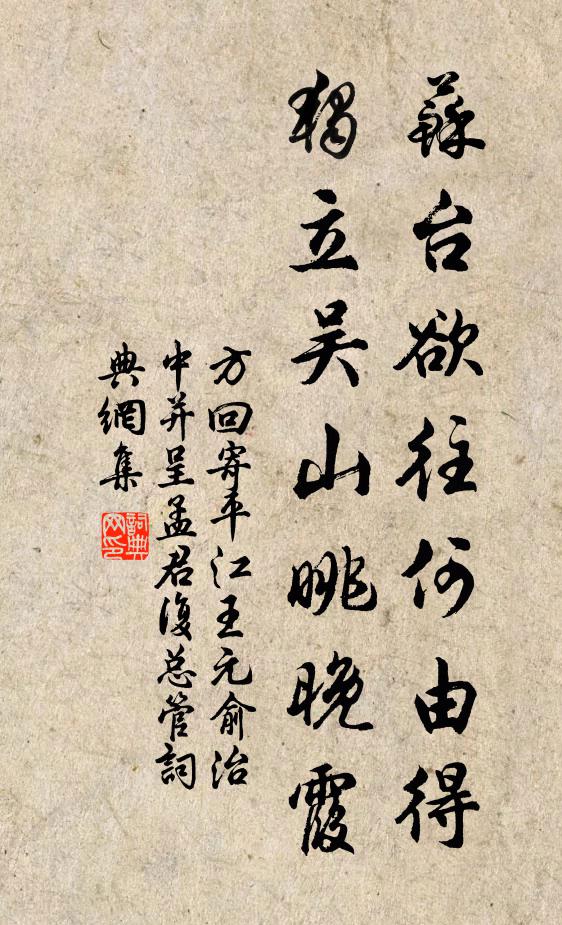 蘇台欲往何由得
獨立吴山眺晚霞
方回寄平江王元俞治
中并呈孟君復总管詞
典網集
詞典网印